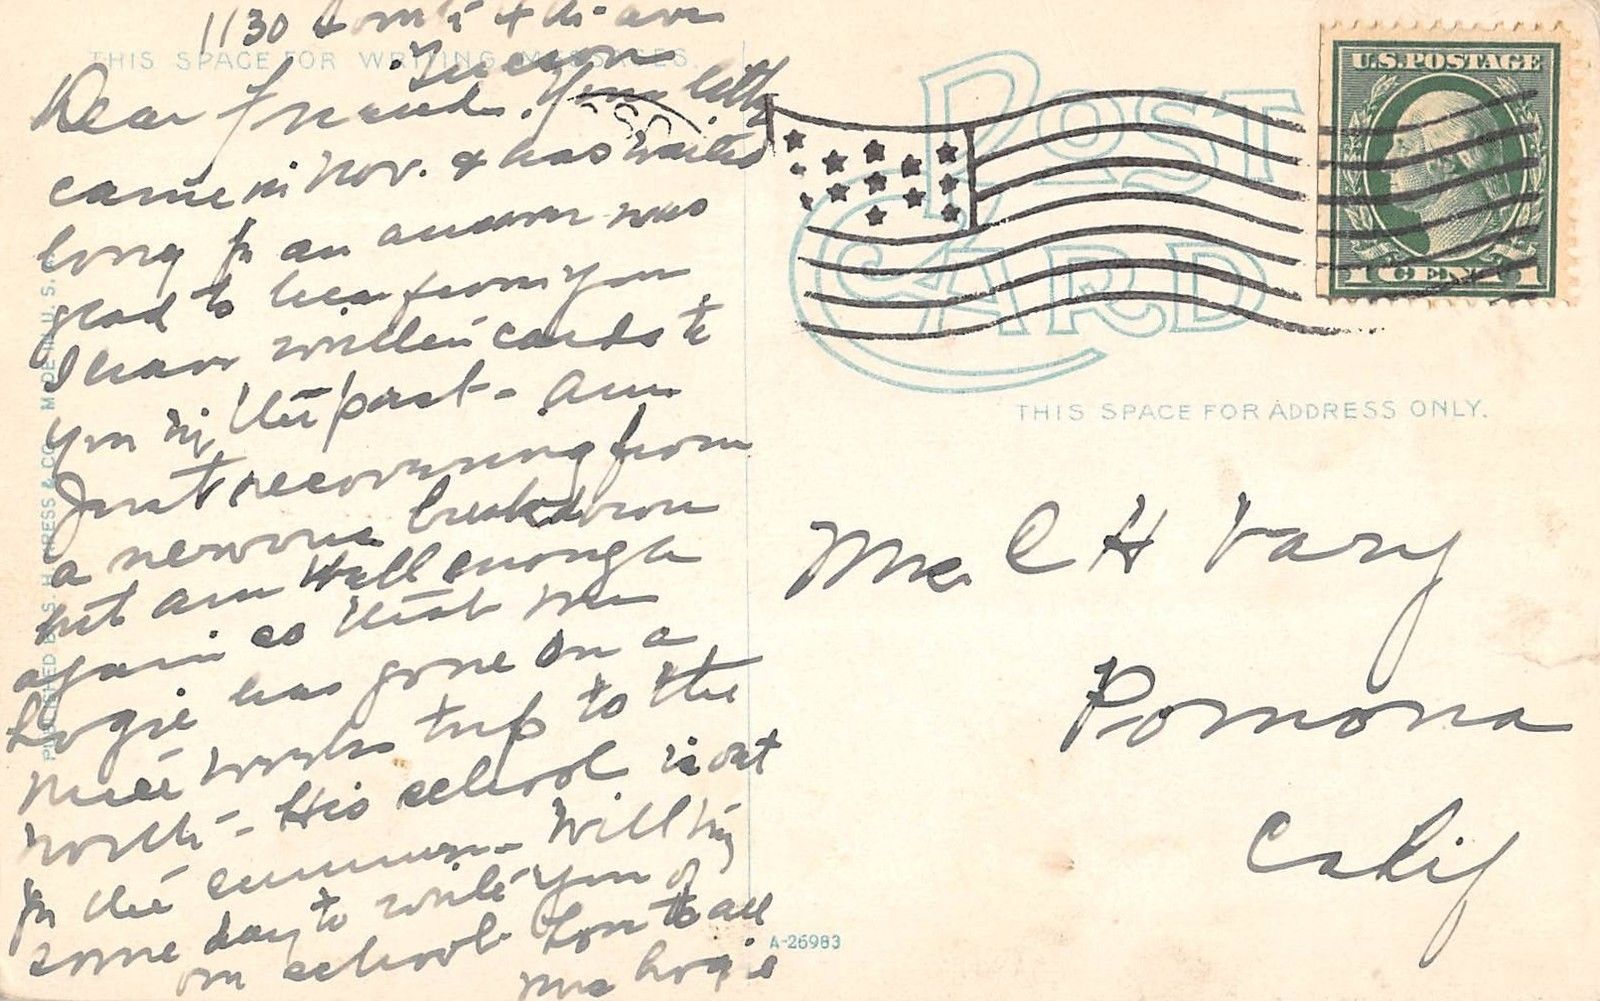 1130
THIS SPACE FOR WRITING MESSAGES.
Tucson
Dear Friend. Your letter
came in Nov. & has waited
long for an answer was
glad to hear from you
I have written cards to
you in the past - am
Just recovering from
a nervous breakdown
but am well enough
again so that Mr
Logie has gone on a
nice weeks trip to the
north - His school is out
for the summer. Will try
some day to write you of
our school. Love to all
Mrs Logie
PUBLISHED BY S. H. KRESS & CO. MADE IN U. S. A.
POST
CARD
U.S. POSTAGE
1 CENT 1
THIS SPACE FOR ADDRESS ONLY.
Mrs C H Vary
Pomona
Calif
A-26983